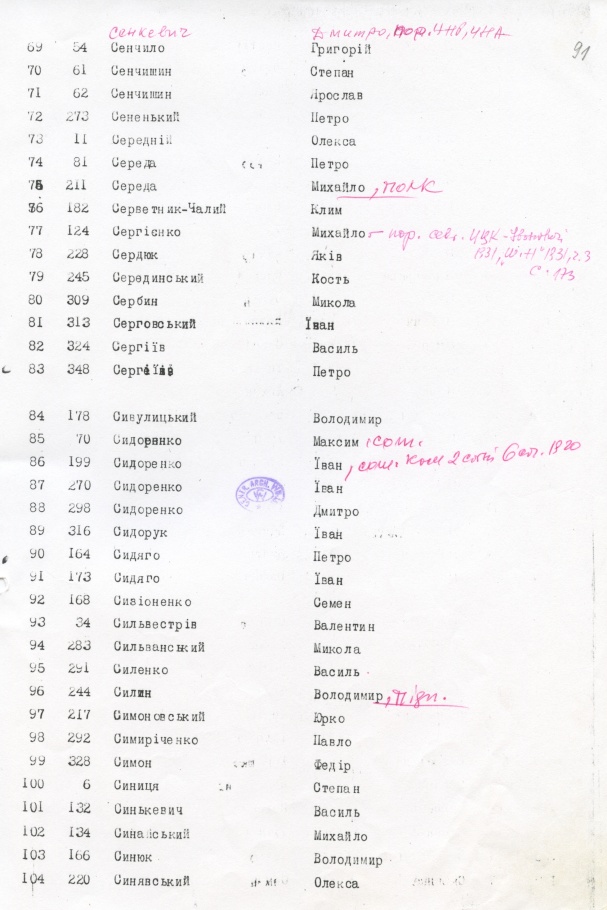 Сенкевич Дмитро, пор. 4НВ, 4НА
91
69 54 Сенчило Григорій
70 61 Сенчишин Степан
71 62 Сенчишин Ярослав
72 273 Сененький Петро
73 11 Середній Олекса
74 81 Середа Петро
75 211 Середа Михайло, полк
76 182 Серветник-Чалий Клим
77 124 Сергієнко Михайло - пор.
78 228 Сердюк Яків
79 245 Серединський Кость
с. 173
80 309 Сербин Микола
81 313 Серговський Іван
82 324 Сергіїв Василь
83 348 Сергіїв Петро
84 178 Сивулицький Володимир
85 70 Сидоренко Максим, сот.
86 199 Сидоренко Їван, сот. Ком 2 сотні 6 1920
87 270 Сидоренко Їван
88 298 Сидоренко Дмитро
89 316 Сидорук Їван
90 164 Сидяго Петро
91 173 Сидяго Їван
92 168 Сизіоненко Семен
93 34 Сильвестрів Валентин
94 283 Сильванський Микола
95 291 Силенко Василь
96 244 Силин Володимир, підп.
97 217 Симоновський Юрко
98 292 Симиріченко Павло
99 328 Симон Федір
100 6 Синиця Степан
101 132 Синькевич Василь
102 134 Синайський Михайло
103 166 Синюк Володимир
104 220 Синявський Олекса